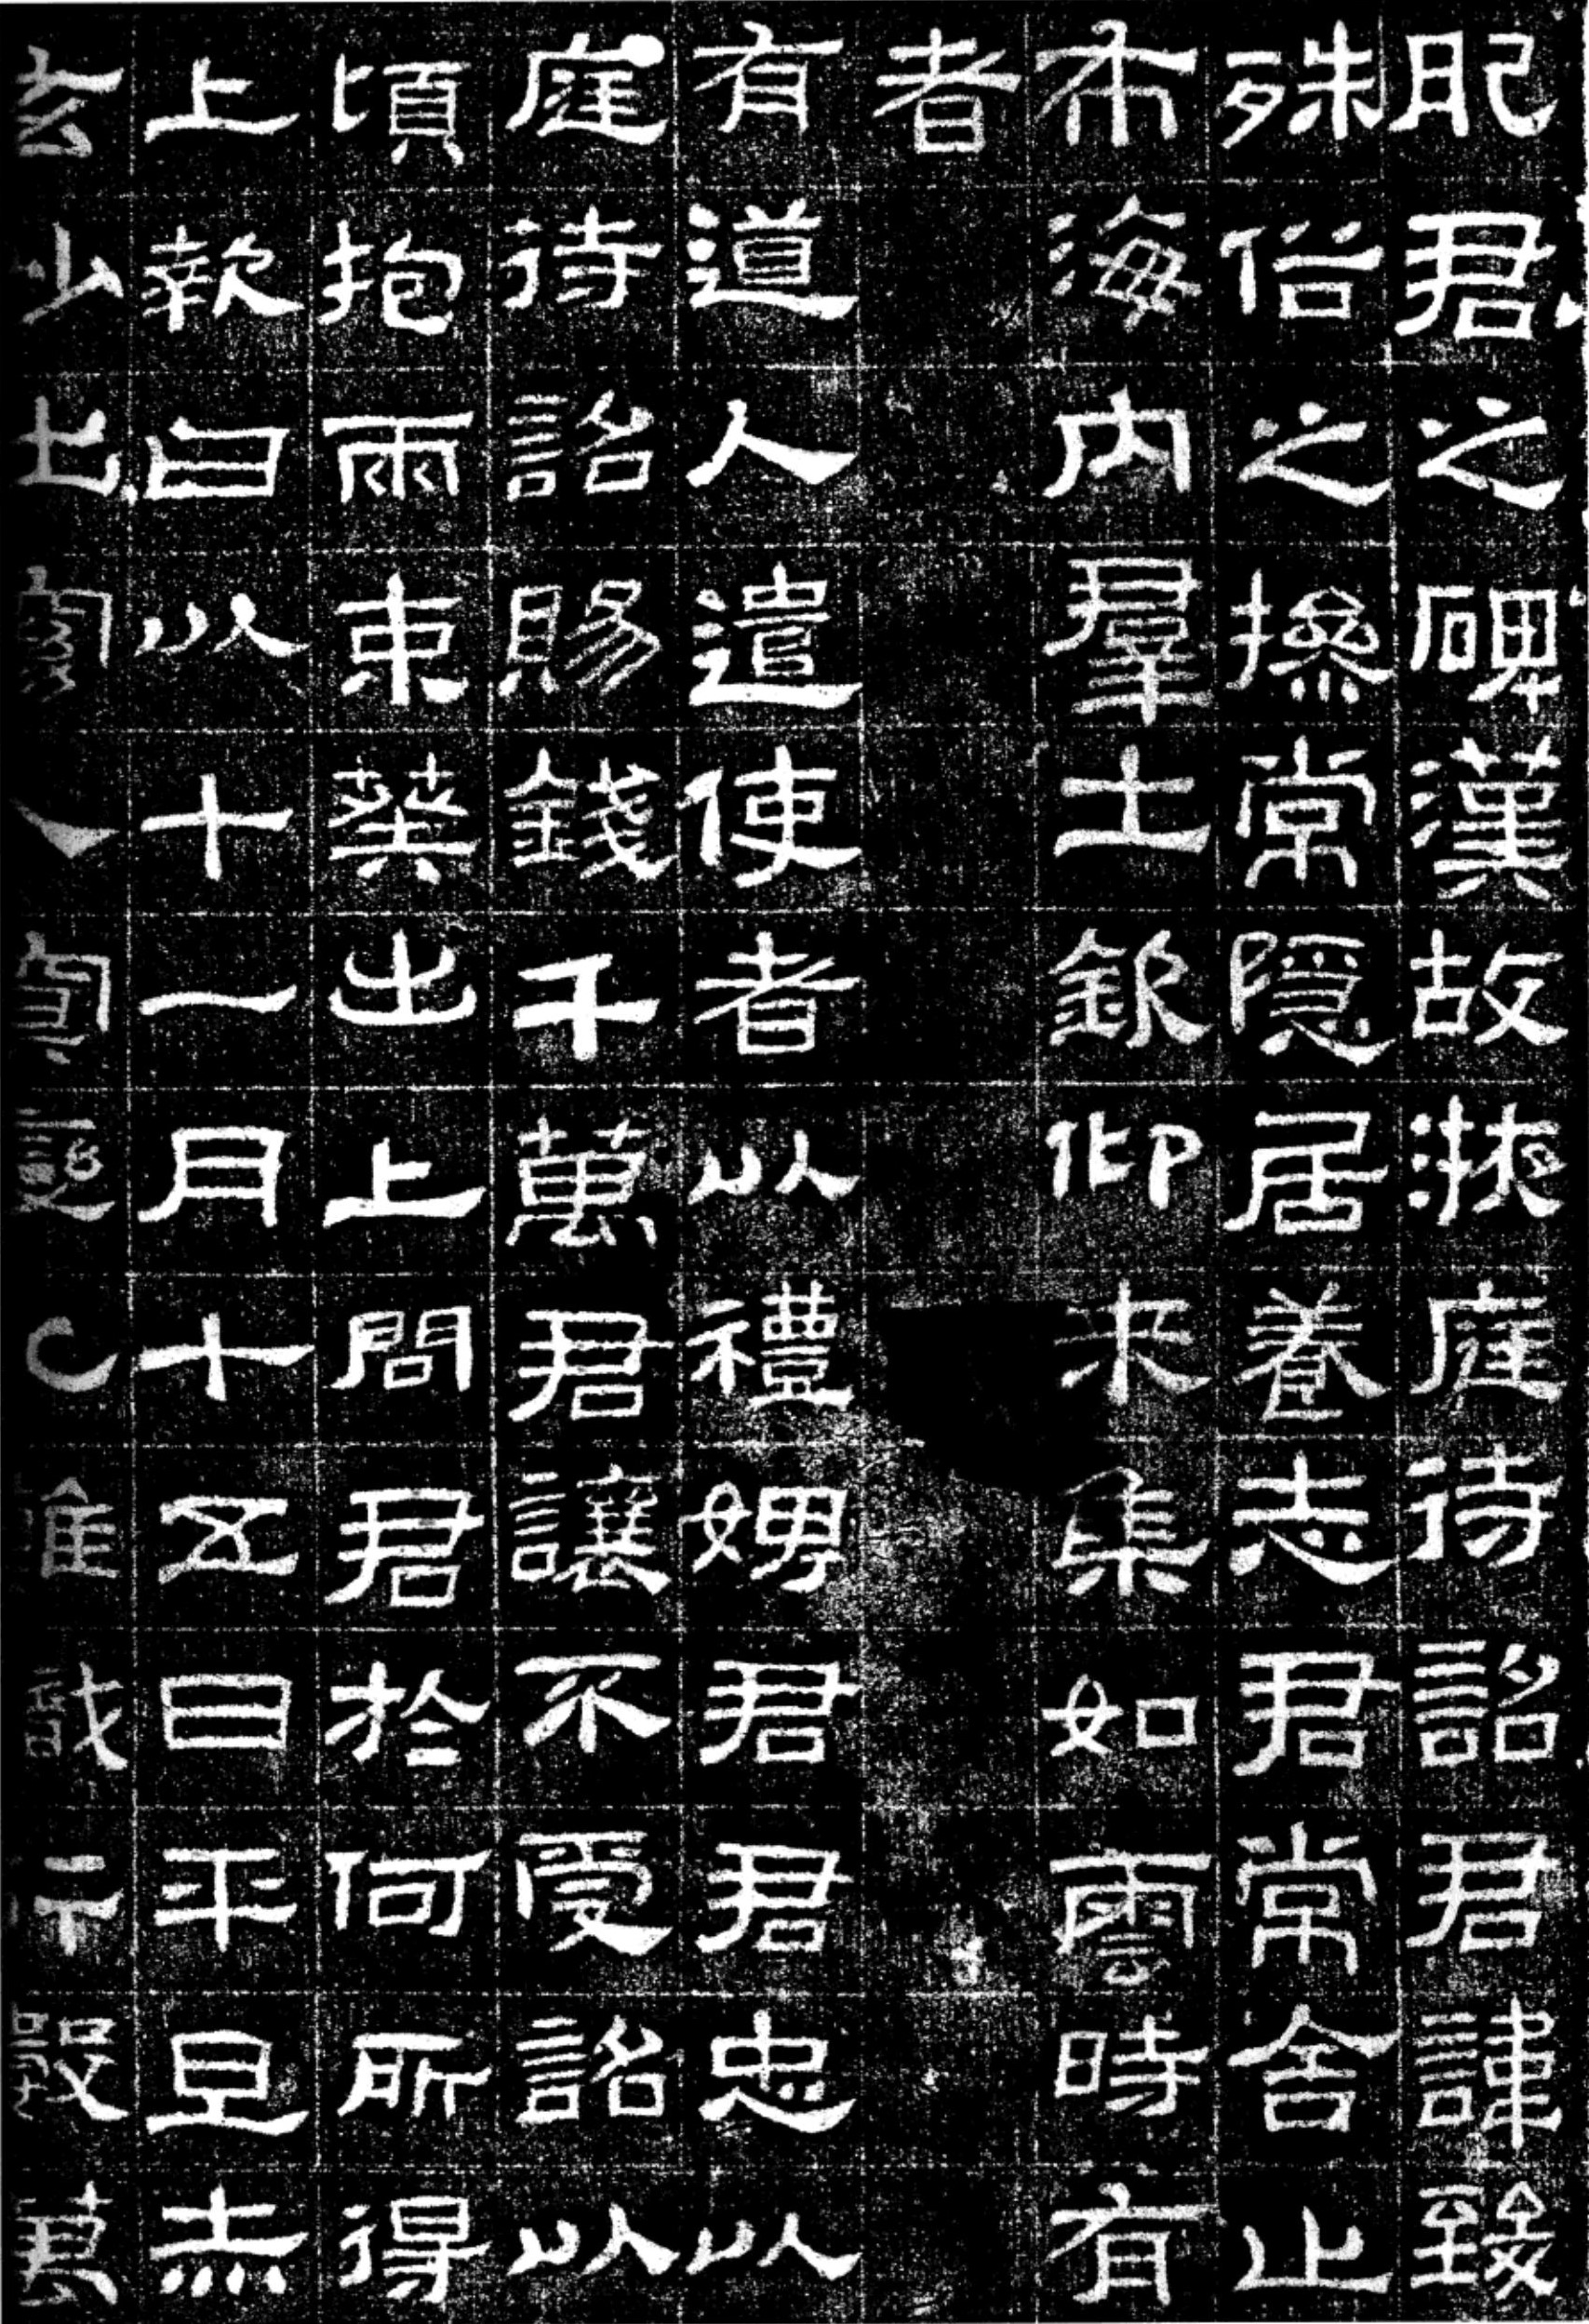 肥君之碑漢故掖庭待詔君諱致
殊俗之操常隱居養志君常舍止
布海内羣士欽仰来集如雲時有
者
有道人遣使者以禮娉君君忠以
庭待詔賜錢千萬君讓不受詔以
頃抱兩束葵出上問君於何所得
上報曰以十一月十五日平旦赤
玄妙出窈入冥變化難識行數萬